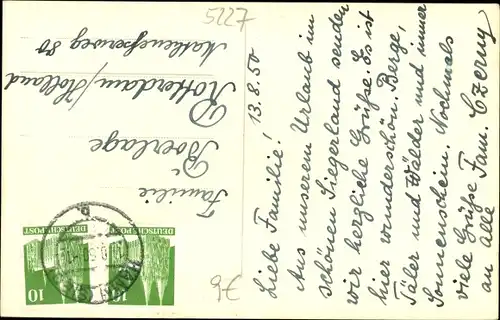 5227
13.8.50
Liebe Familie!
Aus unserem Urlaub im
schönen Siegerland senden
wir herzliche Grüße. Es ist
hier wunderschön. Berge,
Täler und Wälder und immer
Sonnenschein. Nochmals
viele Grüße Fam. Czerny
an alle
Familie
P. Boerlage
Rotterdam/Holland
80
DEUTSCHE POST
DEUTSCHE POST
10
10